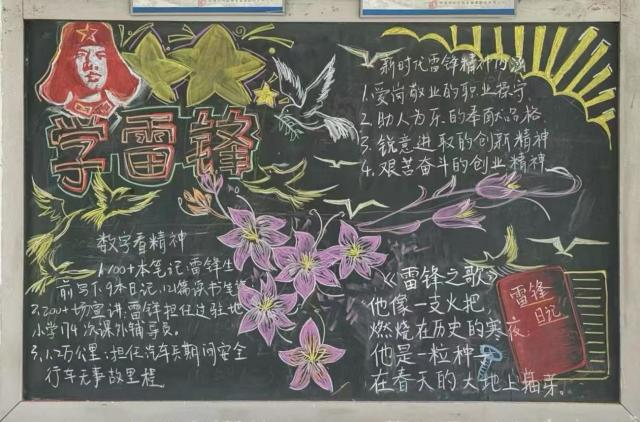 学雷锋
新时代雷锋精神内涵
1.爱岗敬业的职业操守
2.助人为乐的奉献品格
3.锐意进取的创新精神
4.艰苦奋斗的创业精神
数字看精神
1.100+本笔记:雷锋生
前写下9本日记,121篇读书笔
2.200+场宣讲:雷锋担任过驻地
小学 次课外辅导员。
3.1.2万公里:担任汽车兵期间安全
行车无事故里程
《雷锋之歌》
他像一支火把,
燃烧在历史的寒夜,
他是一粒种子
在春天的大地上抽芽。
雷锋
日记